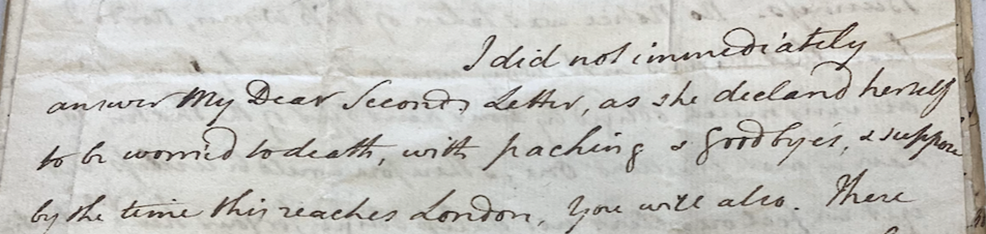 I did not immediately
answer My Dear Seconds Letter, as she declard herself
to be worried to death, with packing & goodbyes, & suppose
by the time this reaches London, you will also. There